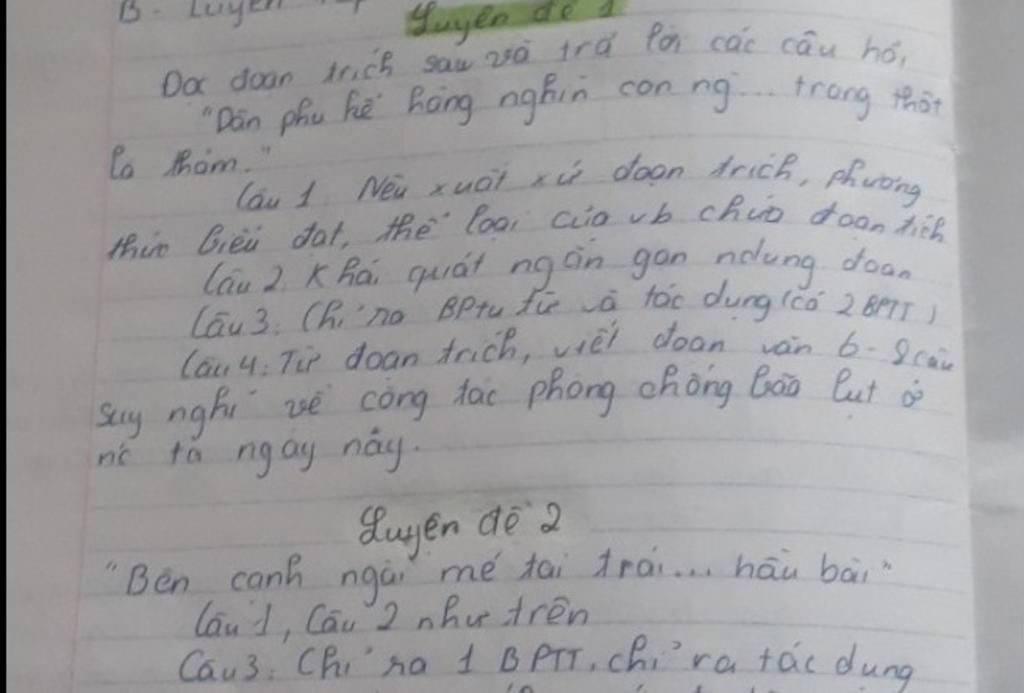 B. Luyện
Luyện đề 1
Đọc đoạn trích sau và trả lời các câu hỏi
"Dân phu kể hàng nghìn con ng... trông thật
là thảm."
Câu 1. Nêu xuất xứ đoạn trích, phương
thức biểu đạt, thể loại của vb chứa đoạn tích
Câu 2. Khái quát ngắn gọn ndung đoạn
Câu 3: Chỉ ra BPtu từ và tác dụng (có 2 BPTT)
Câu 4: Từ đoạn trích, viết đoạn văn 6-8 câu
suy nghĩ về công tác phòng chống bão lụt ở
nc ta ngày nay.
Luyện đề 2
"Bên cạnh ngài mé tai trái... hầu bài"
Câu 1, Câu 2 như trên
Câu 3: Chỉ ra 1 BPTT, chỉ ra tác dụng